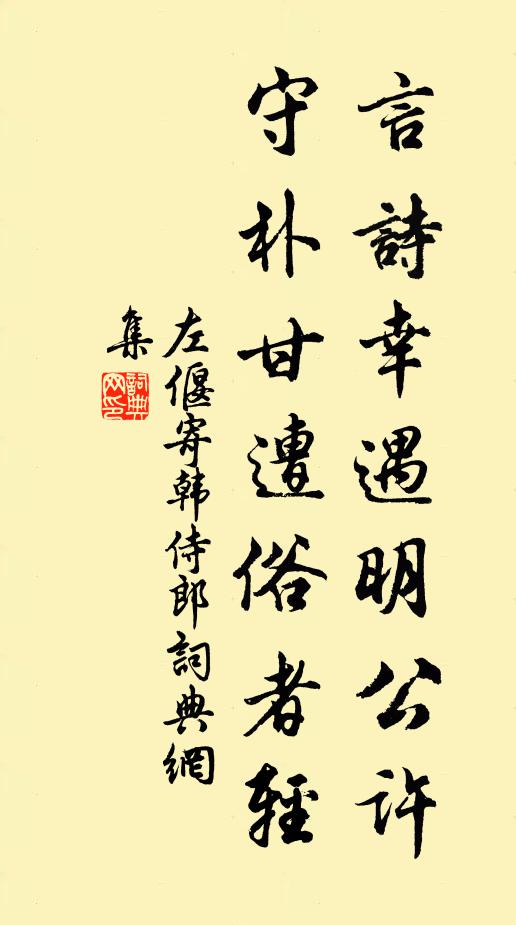 言詩幸遇明公許
守朴甘遭俗者輕
左偃寄韓侍郎詞典網
集
詞典
网印